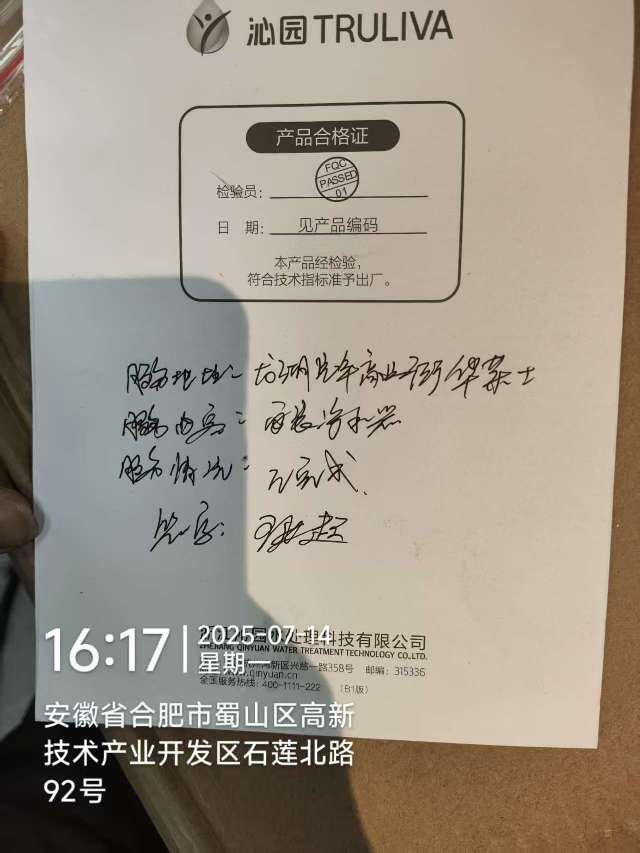 沁园 TRULIVA
产品合格证
FQC
PASSED
01
检验员:
日 期: 见产品编码
本产品经检验,
符合技术指标准予出厂。
服务地址: 龙湖 商业 华莱士
服务内容: 安装净水器
服务情况: 已完成
签字:
16:17
2025-07-14
星期一
水处理科技有限公司
ZHEJIANG QINYUAN WATER TREATMENT TECHNOLOGY CO.,LTD.
高新区兴慈一路358号 邮编: 315336
.qinyuan.cn
全国服务热线: 400-1111-222 (B1版)
安徽省合肥市蜀山区高新
技术产业开发区石莲北路
92号